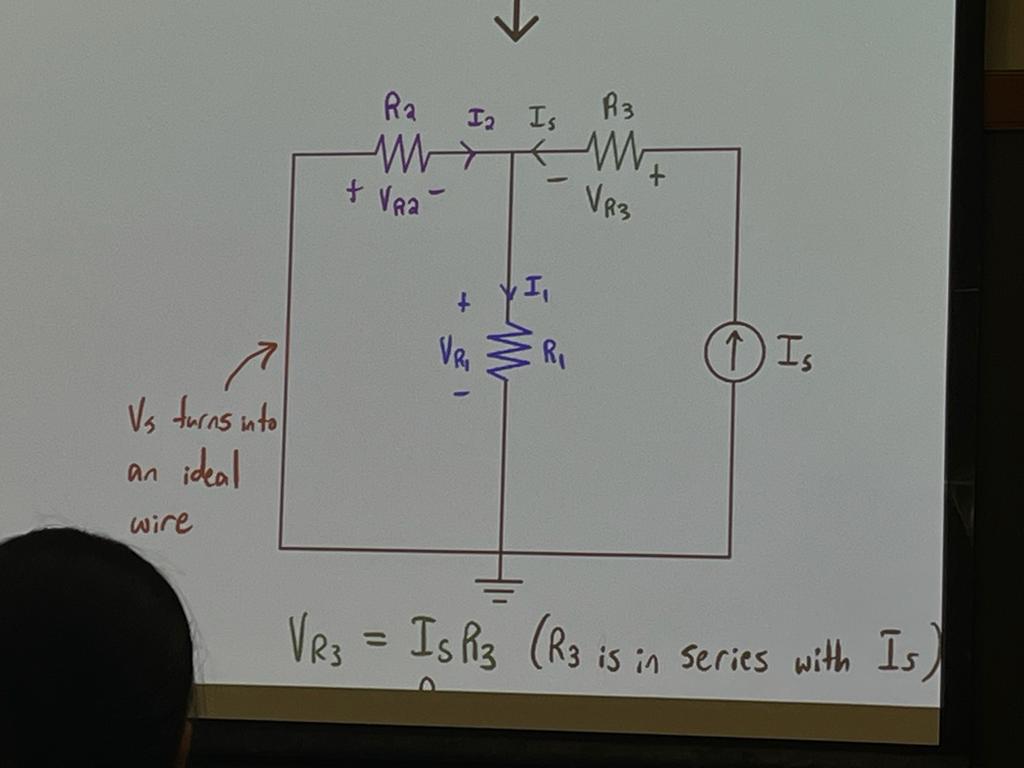 R2 I2 Is R3
+ VR2 - - VR3 +
+ I1
VR1 R1 Is
-
Vs turns into
an ideal
wire
VR3 = IsR3 (R3 is in series with Is)